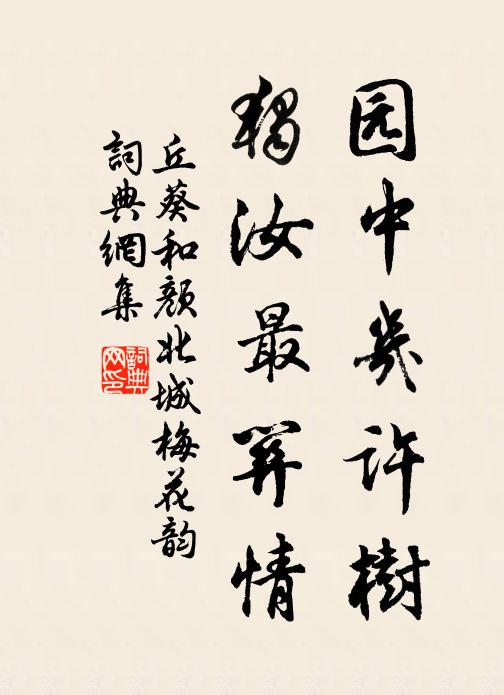 园中几许樹
獨汝最関情
丘葵和顏北城梅花韵
詞典網集
詞典网印